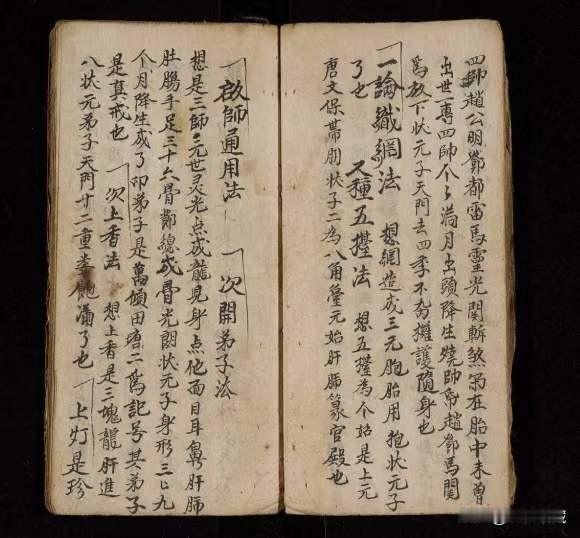 四帥趙公明鄷都雷馬靈光関斬煞現在胎中未曾
出世一專四帥个々滿月出頭降生燒帥帝趙鄷馬関
爲下状元子天門去四季不擁護隨身也
一論織網法 想網造成三元胞胎用抱状元子
了也 又種五摟法 想五摟為个始是上元
唐文保帯朋状子二為八角聖元始肝肺篆官殿也
啟師通用法 一次開弟子法
想是三師三元世灵光点成龍見身点他面目耳鼻肝肺
肚腸手足三十六骨鄷總成骨光朗状元子身形三亡九
个月降生成了印弟子是萬傾田唐二爲記号其弟子
是真戒也 一次上香法 想上香是三塊龍肝進
八状元弟子天門廿二重飽滿了也 一上灯是珍